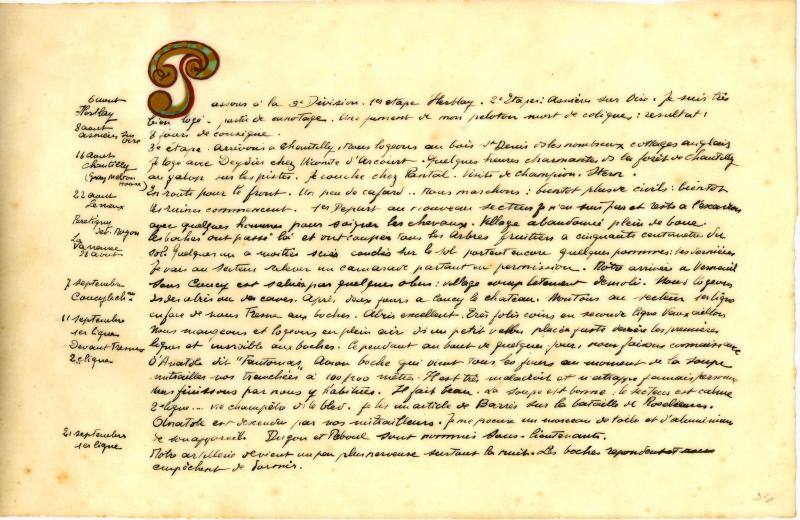 6 aout
Herblay
8 aout
Asnières sur
Oise
16 aout
Chantilly
22 aout
Pretigny
Noyon
La
28 aout
7 septembre
11 septembre
1er ligne
Devant
2e ligne
21 septembre
1er ligne
Passons à la 3e Division. 1er etape Herblay. 2e Etape: Asnières sur Oise. Je suis très
bien logé. partie de canotage. Une jument de mon peloton meurt de colique: resultat:
8 jours de consigne.
3e étape. Arrivons à Chantilly. Nous logeons au bois St Denis ds les nombreux cottages anglais
Je loge avec Deydier chez Vicomte d'Arcourt. Quelques heures charmantes ds la forêt de Chantilly
au galop sur les pistes. Je couche chez Pantal. Visite de champion. Stern.
En route pour le front. Un peu de cafard.. Nous marchons: bientot plus de civils: bientot
les ruines commencent. 1er Depart au nouveau secteur je n'en suis pas et reste à l'escadron
avec quelques hommes pour soigner les chevaux. Village abandonné plein de boue.
Les boches ont passé là et ont coupés tous les arbres fruitiers a cinquante centimetres du
sol. Quelques uns a moitiés sciés couchés sur le sol portent encore quelques pommes: les dernières
Je vais au secteur relever un camarade partant en permission. Notre arrivée a Verneuil
sous Coucy est saluée par quelques obus: village completement demoli. Nous logeons
ds des abris ou des caves. Après deux jours a Coucy le chateau. Montons au secteur 1er ligne
en face de nous Fresne aux boches. Abris excellent. Très jolis coins en seconde ligne
Nous mangeons et logeons en plein air ds un petit vallon placé juste derrière les premières
lignes et invisible aux boches. Cependant au bout de quelques jours nous faisons connaissance
d'Anatole dit "Fantomas" Avion boche qui vient tous les jours au moment de la soupe
mitrailler nos tranchées à 100 mètres. Il est très maladroit et n'attrape jamais personne
nous finissons par nous y habituer. Il fait beau, la soupe est bonne: le secteur est calme
2e ligne... vie champêtre ds le bled. Je lis un article de Barrès sur la bataille de
Anatole est descendu par nos mitrailleurs. Je me procure un morceau de toile et d'aluminium
de son appareil. Dugon et Reboul sont nommés sous-lieutenants.
Notre artillerie devient un peu plus nerveuse surtout la nuit. Les boches repondent et nous
empêchent de dormir.